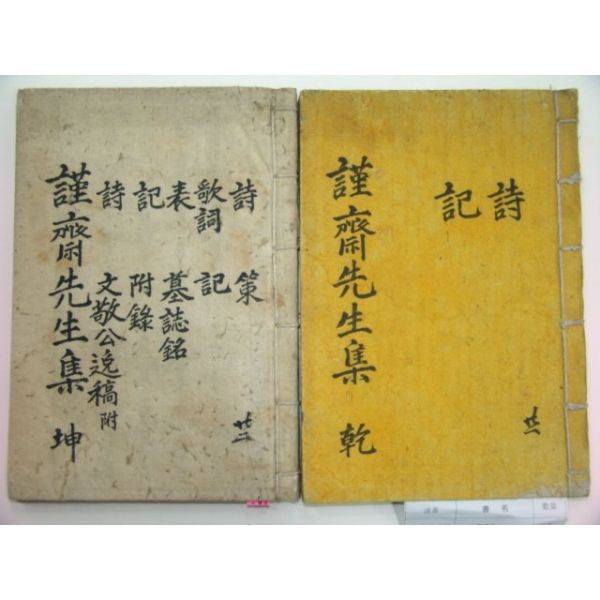 詩
記
謹齋先生集 乾
詩 策
歌詞 記
表 墓誌銘
記 附錄
詩 文敬公逸稿 附
謹齋先生集 坤
廿二
書名